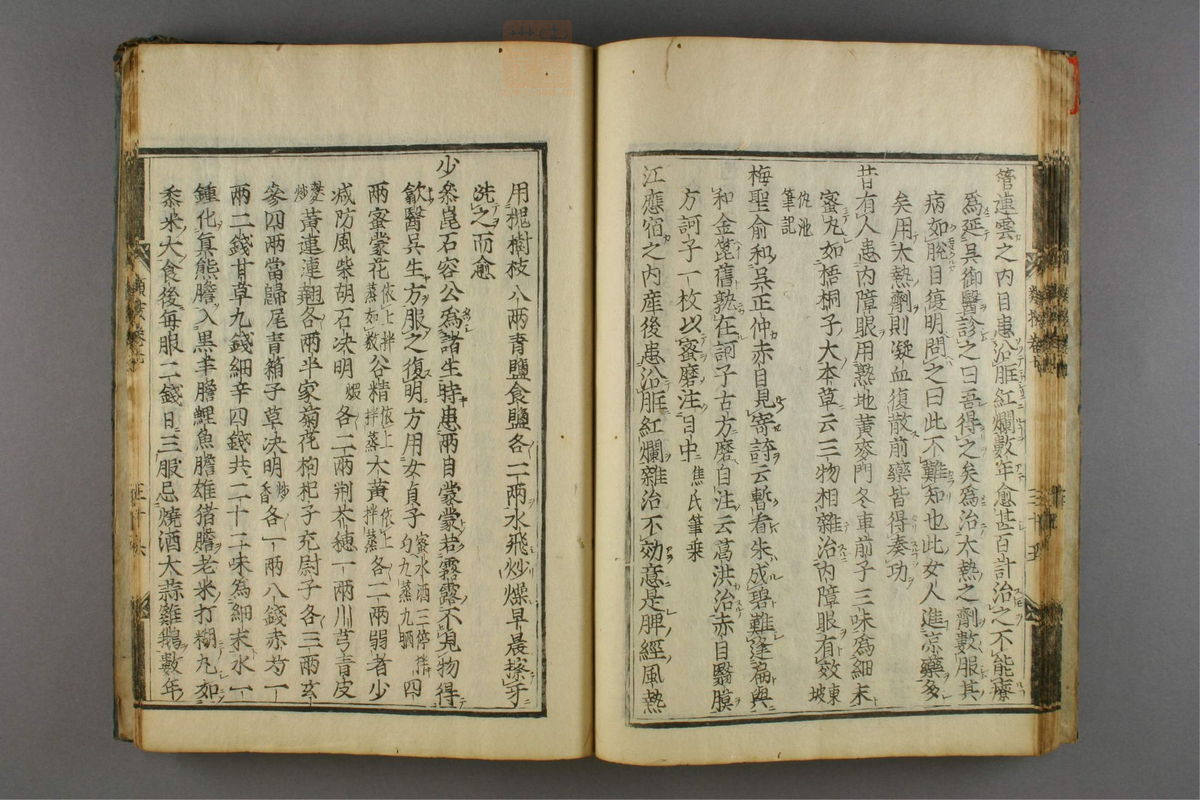 管連雲之内目患沿眶紅爛數年愈甚百計治之不能療
爲延呉御醫診之曰吾得之矣爲治太熱之劑數服其
病如脱目復明問之曰此不難知也此女人進凉藥多
矣用大熱劑則凝血復散前藥皆得奏功
昔有人患内障眼用熟地黄麥門冬車前子三味爲細末
蜜丸如梧桐子大本草云三物相雜治内障眼有效東坡
仇池筆記
梅聖俞和呉正仲赤目見寄詩云暫看朱成碧難逢扁與
和金篦舊孰在訶子古方磨自注云葛洪治赤目翳膜
方訶子一枚以蜜磨注目中焦氏筆乗
江應宿之内産後患沿眶紅爛雜治不効意是脾經風熱
用槐樹枝八兩青鹽食鹽各二兩水飛炒燥早晨擦牙
洗之而愈
少參崑石容公爲諸生時患兩目蒙蒙若霧露不見物得
歙醫呉生方服之復明方用女貞子蜜水酒三停拌匀九蒸九晒四
兩蜜蒙花依上拌蒸如數谷精依上拌蒸大黄依上拌蒸各二兩弱者少
减防風柴胡石决明煆各二兩荆芥穗一兩川芎青皮
麩炒黄連連翹各兩半家菊花枸杞子充尉子各三兩玄
參四兩當歸尾青箱子草决明炒香各一兩八錢赤芍一
兩二錢甘草九錢細辛四錢共二十二味爲細末水一
鍾化眞熊膽入黒羊膽鯉魚膽雄猪膽老米打糊丸如
黍米大食後毎服二錢日三服忌燒酒大蒜雞鵝數年